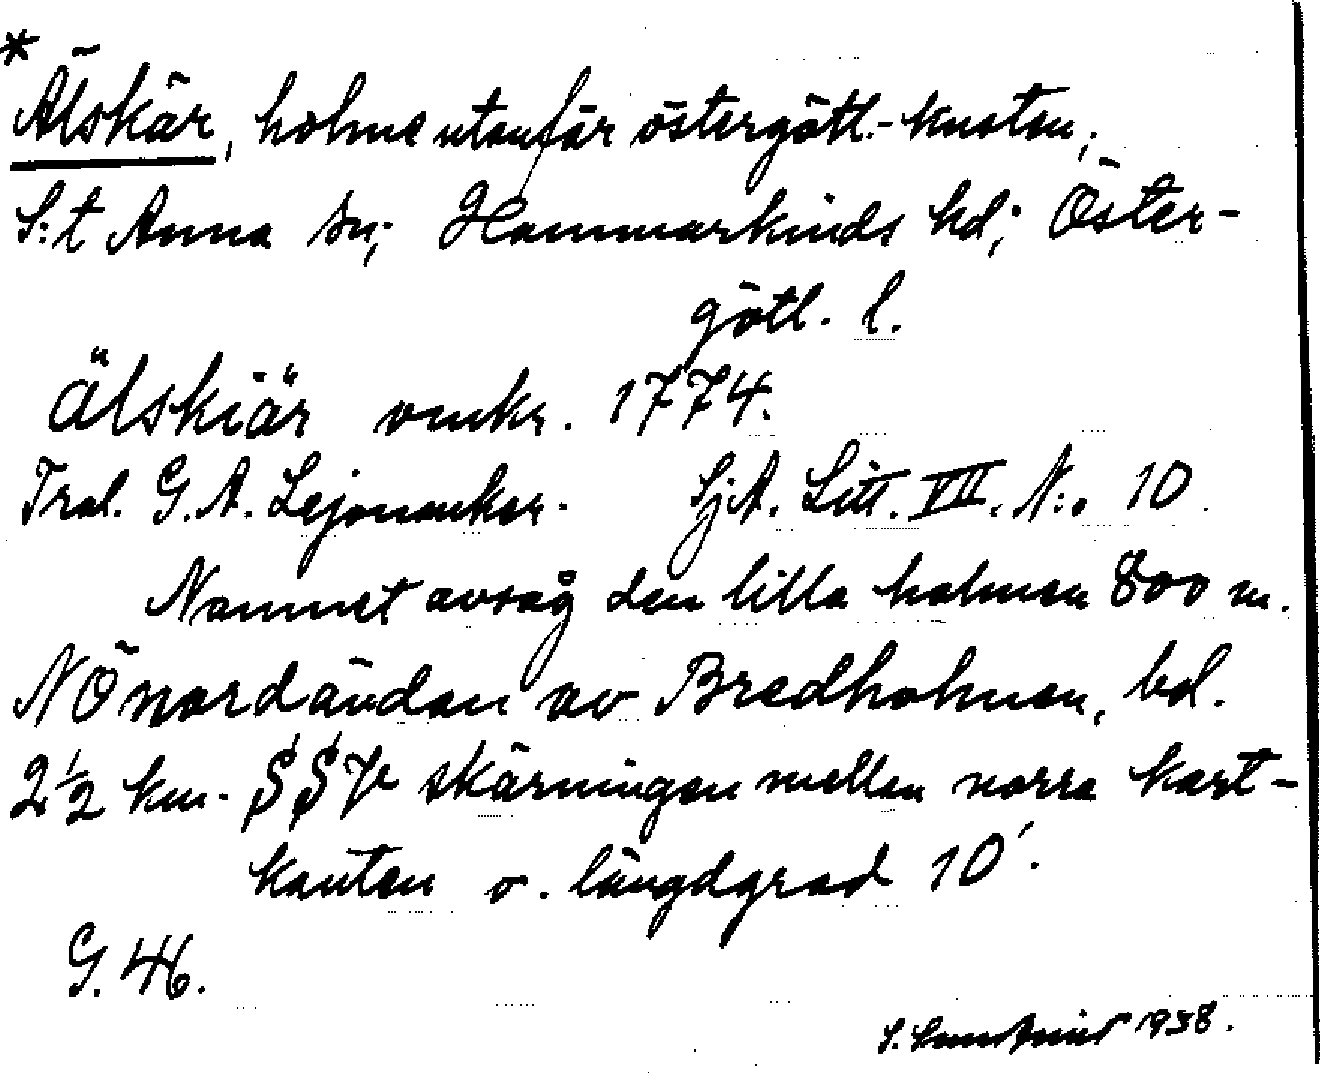 *
Älskär, holme utanför östergötl.-kusten;
S:t Anna sn; Hammarkinds hd; Öster-
götl. l.
Älskiär omkr. 1774.
Tral. G. A. Lejonanker. SjA. Litt. VII. N:o 10.
Namnet avsåg den lilla holmen 800 m.
NÖ nordändan av Bredholmen, bel.
2½ km. SSV skärningen mellan norra kart-
kanten o. längdgrad 10´.
G. 46.
S. 1938.